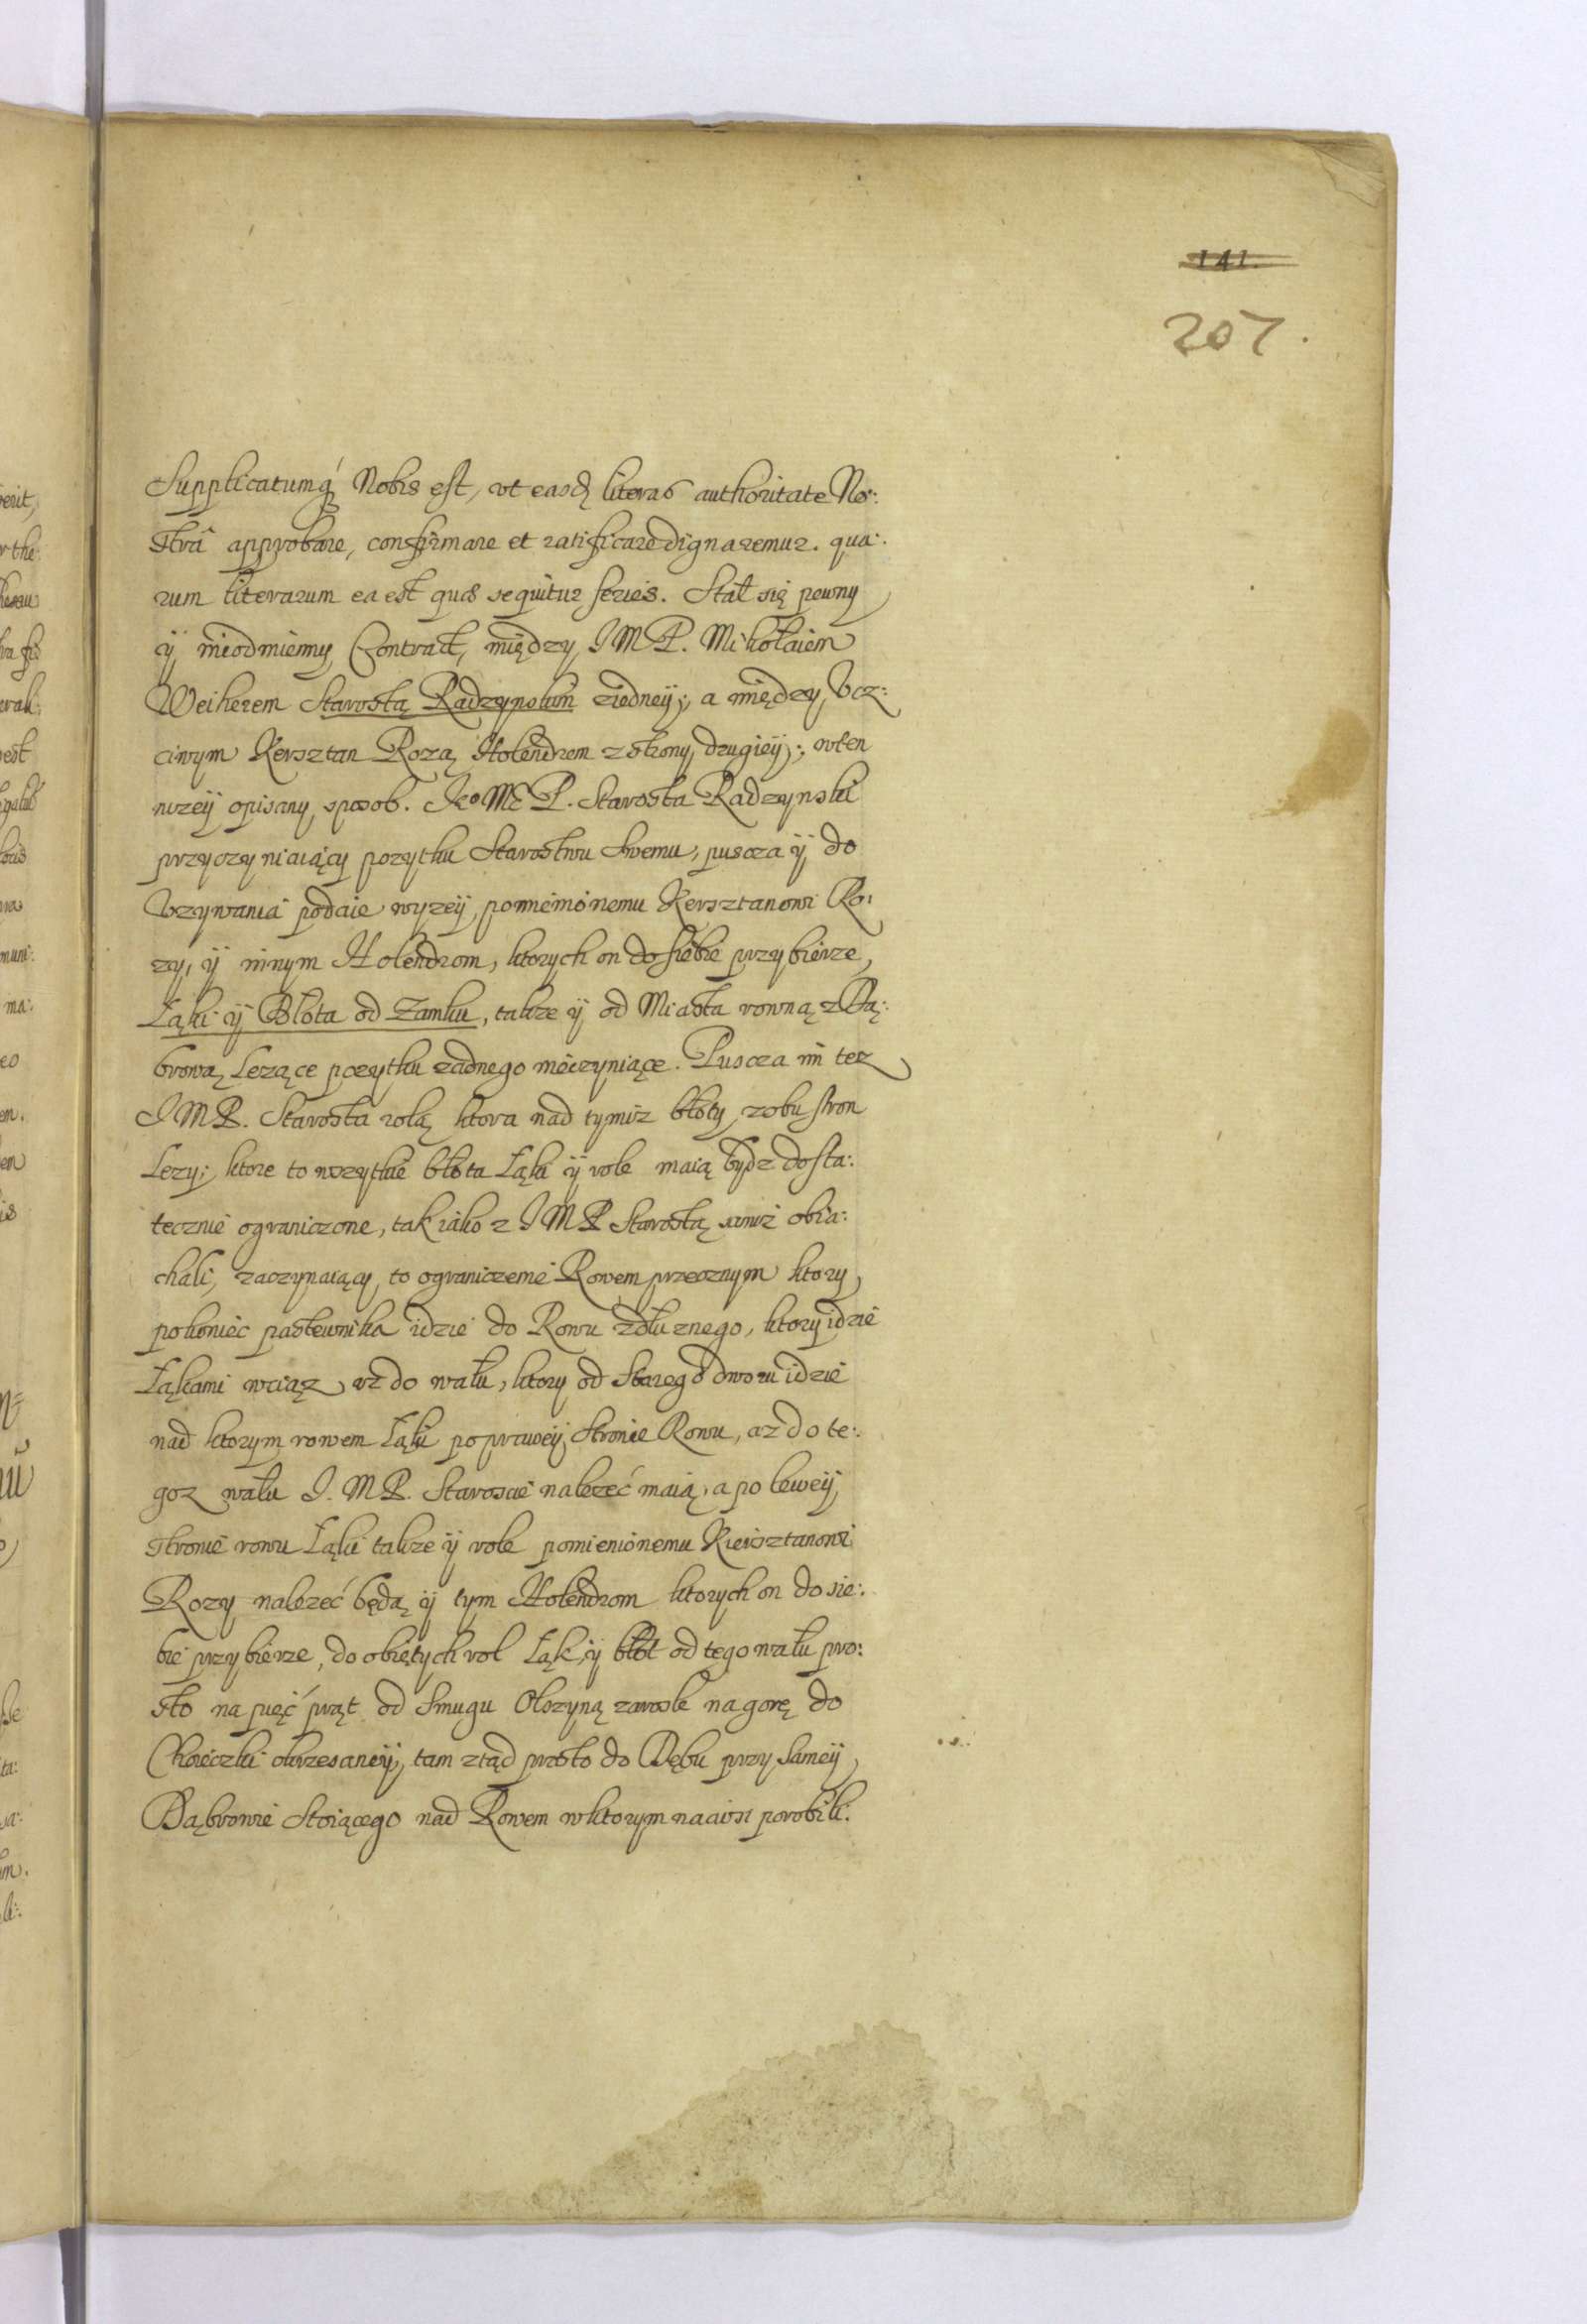 141.
207.
Supplicatumq́ Nobis est, vt easdꝫ literas authoritate No:
strâ approbare, confirmare et ratificare dignaremur. qua:
rum literarum ea est quæ sequitur series. Stał się pewny
ÿ nieodmienny Contract, między IMP. Mikołaiem
Weiherem Starostą Radzynskim ziedneÿ, a między Vcz:
ciwym Kersztan Rozą Holendrem z strony drugieÿ; wten
nizeÿ opisany sposob. Ieo Mć P. Starosta Radzynski
przyczyniaiący pozytku Starostwu Swemu, puscza ÿ do
Vzywania podaie wyzeÿ pomienionemu Kersztanowi Ro:
zy, ÿ innym Holendrom, ktorych on do siebie przybierze,
Łąki ÿ Błota od Zamku, takze ÿ od Miasta rowną z Dą:
brową Lezące pozytku zadnego nieczyniące. Puscza im tez
IMP. Starosta rolą ktora nad tymiz błoty zobu stron
Lezy; ktore to wszytkie błota Łąki ÿ role maią bydz dosta:
tecznie ograniczone, tak iako z IMP Starostą sami obia:
chali, zaczynaiący to ograniczenie Rowem przecznym ktory
pokoniec pastewnika idzie do Rowu zdłuznego, ktory idzie
Łąkami wciąz, az do wału, ktory od Starego dworu idzie
nad ktorym rowem Łąki po praweÿ Stronie Rowu, az do te:
goz wału I. M P. Staroscie nalezeć maią, a po leweÿ
stronie rowu Łąki takze ÿ role pomienionemu Kiersztanowi
Rozy nalezeć będą ÿ tym Holendrom ktorych on do sie:
bie przybierze, do obiętych rol Łąk, ÿ błót od tego wału pro:
sto na pięć prąt od Smugu Olszyną zarosłe na gorę do
Choieczki okrzesaneÿ, tam ztąd prosto do Dębu przy sameÿ
Dąbrowie Stoiącego nad Rowem wktorym naciosi porobili.